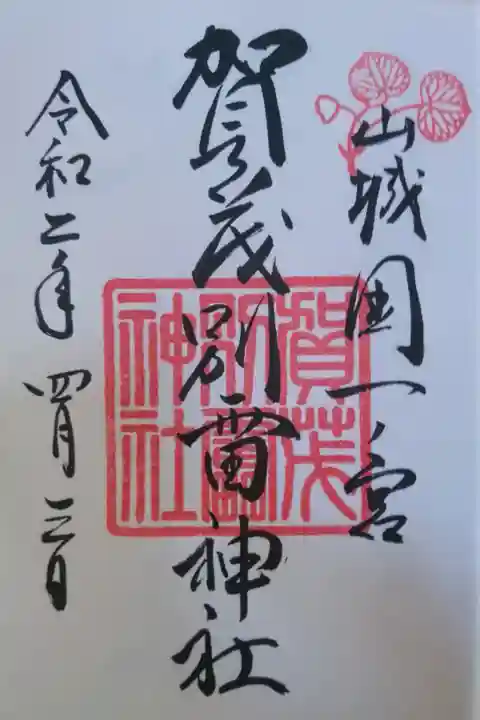 山城国一ノ宮
賀茂別雷神社
令和二年 四月三日
賀茂
別雷
神社